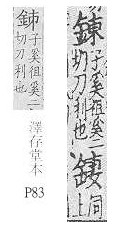 子奚徂奚二
切刀利也
上同
子奚徂奚二
切刀利也
澤存堂本
P83